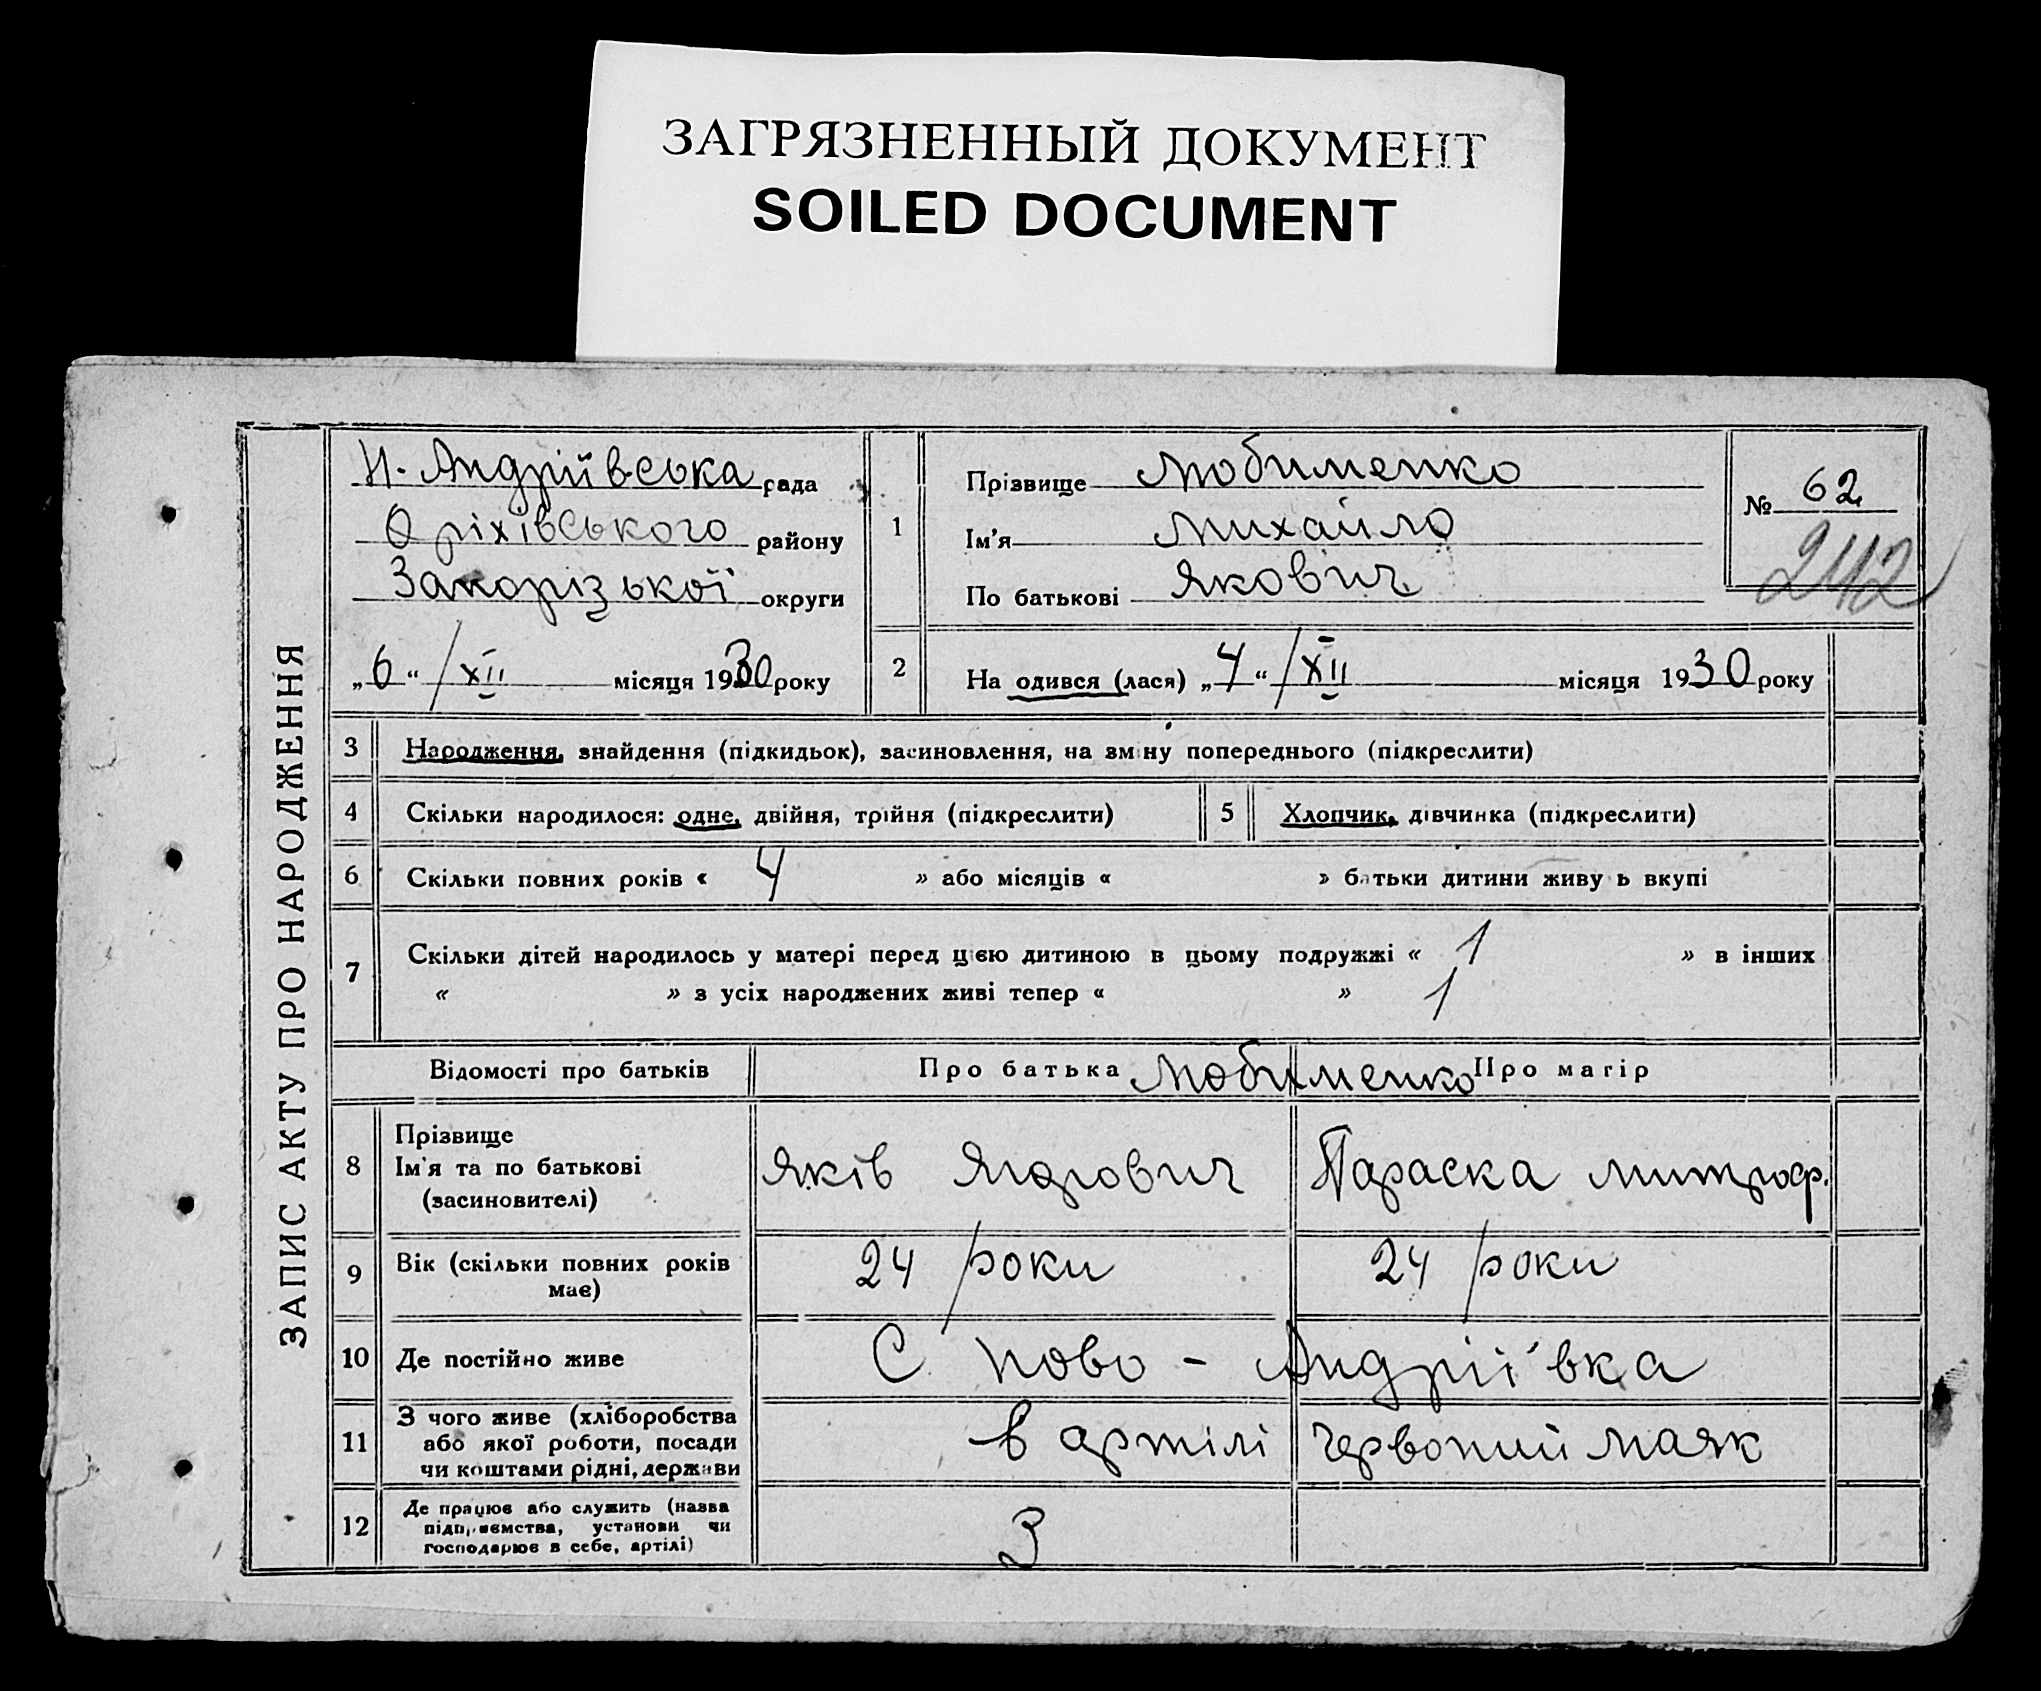 ЗАГРЯЗНЕННЫЙ ДОКУМЕНТ
SOILED DOCUMENT
ЗАПИС АКТУ ПРО НАРОДЖЕННЯ
Н. Андріївська рада
Оріхівського району
Запорізької округи
„6“ / XII місяця 1930 року
1
Прізвище Любименко
Ім'я Михайло
По батькові Якович
№ 62
242
2 На одився (лася) „4“ / XII місяця 1930 року
3 Народження, знайдення (підкидьок), засиновлення, на зміну попереднього (підкреслити)
4 Скільки народилося: одне, двійня, трійня (підкреслити)
5 Хлопчик, дівчинка (підкреслити)
6 Скільки повних років « 4 » або місяців « » батьки дитини живу ь вкупі
7 Скільки дітей народилось у матері перед цією дитиною в цьому подружжі « 1 » в інших
« » з усіх народжених живі тепер « » 1
Відомості про батьків
Про батька Любименко Про матір
8 Прізвище
Ім'я та по батькові
(засиновителі)
Яків Ягорович
Параска Митроф.
9 Вік (скільки повних років
має)
24 роки
24 роки
10 Де постійно живе
С Ново - Андріївка
11 З чого живе (хліборобства
або якої роботи, посади
чи коштами рідні, держави
в артілі Червоний маяк
12 Де працює або служить (назва
підприємства, установи чи
господарює в себе, артілі)
З